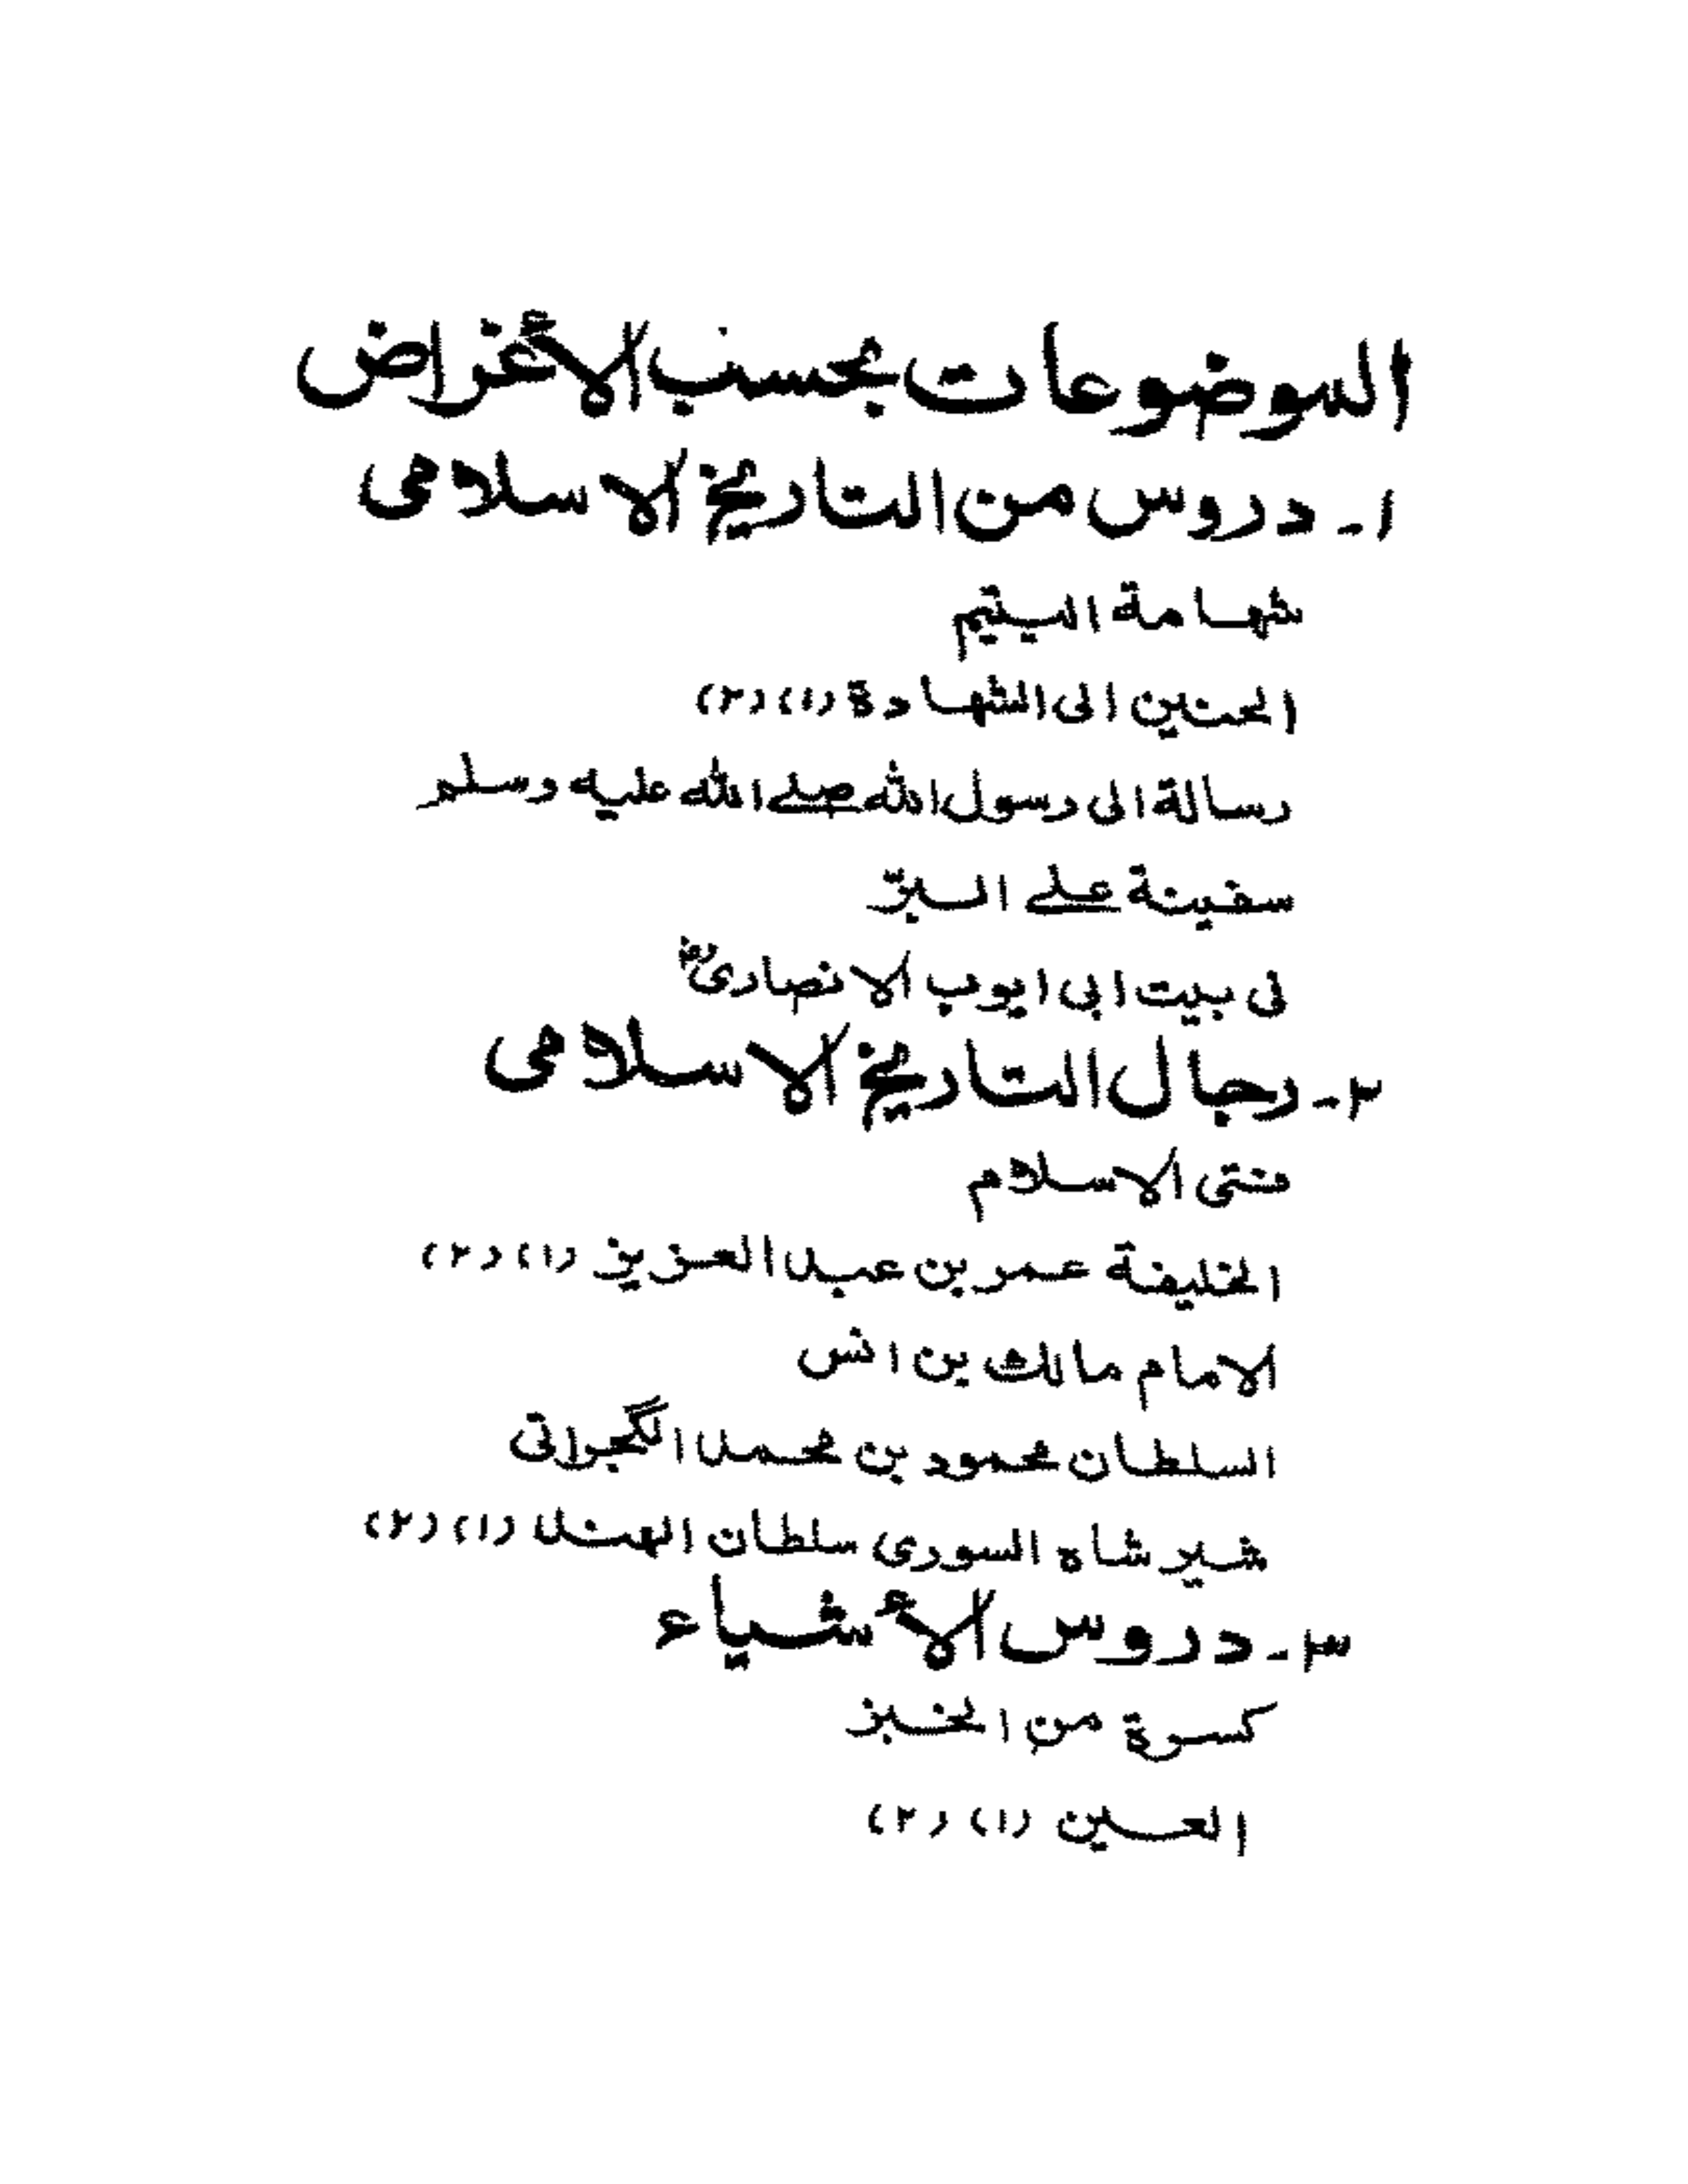 الموضوعات بحسب الأغراض
١ـ دروس من التاريخ الاسلامى
شهامة اليتيم
الحنين الى الشهادة (١) (٢)
رسالة الى رسول الله صلى الله عليه وسلم
سفينة على البرّ
فى بيت ابى ايوب الانصارىؓ
٢ـ رجال التاريخ الاسلامى
فتى الاسلام
الخليفة عمر بن عبد العزيز (١) (٢)
الامام مالك بن انس
السلطان محمود بن محمد الگجراتى
شير شاه السورى سلطان الهند (١) (٢)
٣ـ دروس الأشياء
كسرة من الخبز
العين (١) (٢)